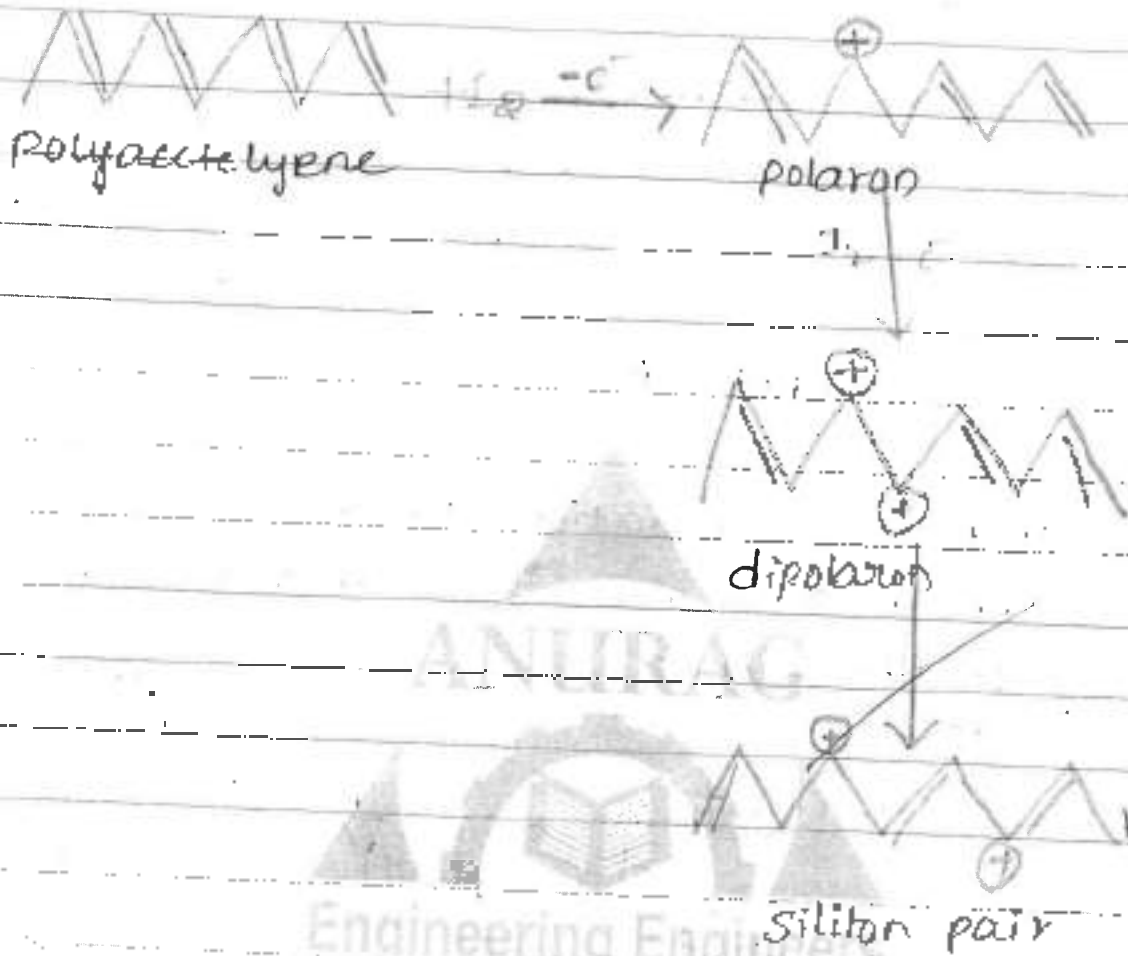 -e⁻
polyacetelyene
polaron
⊕
dipolaron
ANURAG
Siliton pair
Engineering Engineers